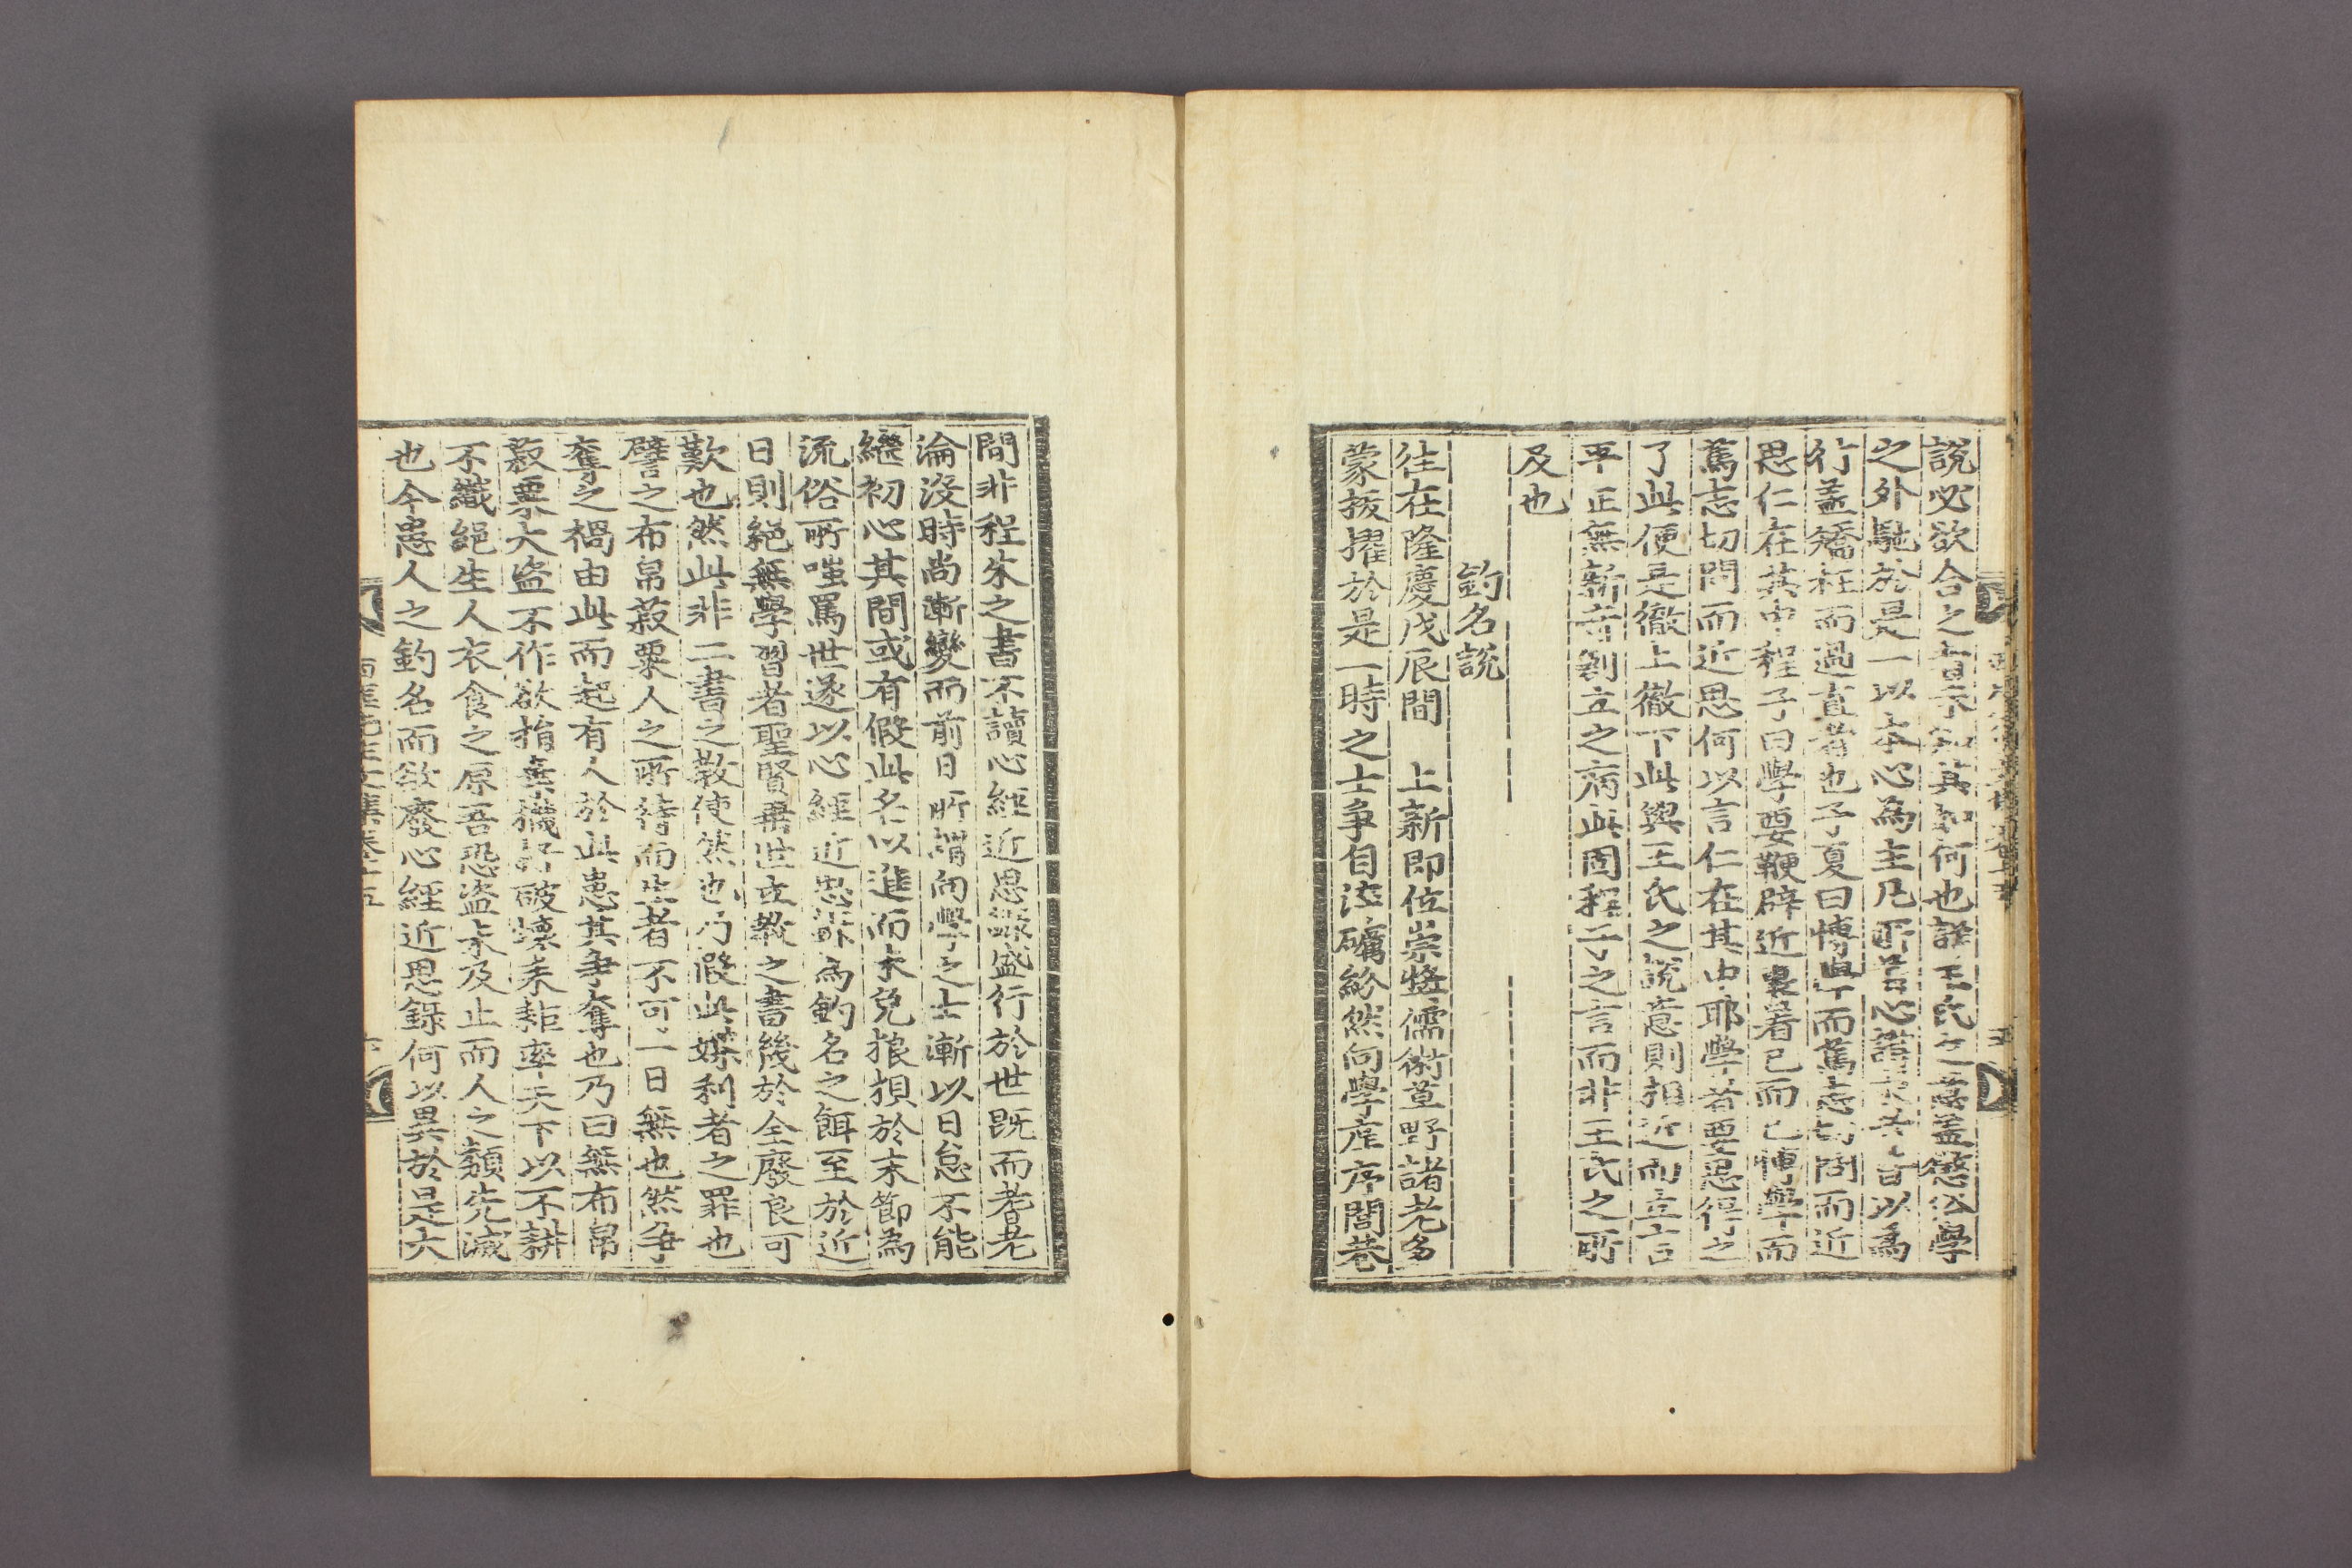 說必欲合之者未知其如何也詳王氏之意盖懲俗學
之外馳於是一以本心為主凡所言心講求者皆以為
行盖矯枉而過直者也子夏曰博學而篤志切問而近
思仁在其中程子曰學要鞭辟近裏著己而已博學而
篤志切問而近思何以言仁在其中耶學者要思得之
了此便是徹上徹下此與王氏之說意則相近而立言
平正無新奇刱立之病此固程子之言而非王氏之所
及也
釣名說
往在隆慶戊辰間 上新即位崇奬儒術草野諸老多
蒙拔擢於是一時之士爭自淬礪紛然向學庠序閭巷
間非程朱之書不讀心經近思錄盛行於世旣而耆老
淪沒時尚漸變而前日所謂向學之士漸以日怠不能
繼初心其間或有假此名以進而未免狼狽於末節為
流俗所嗤罵世遂以心經近思錄為釣名之餌至於近
日則絕無學習者聖賢垂世立教之書幾於全廢良可
歎也然此非二書之教使然也乃假此媒利者之罪也
譬之布帛菽粟人之所待而生者不可一日無也然爭
奪之禍由此而起有人於此患其爭奪也乃曰無布帛
菽粟大盜不作欲捎棄機杼破壞耒耟率天下以不耕
不織絕生人衣食之原吾恐盜未及止而人之類先滅
也今患人之釣名而欲廢心經近思錄何以異於是大
西厓先生文集卷十五